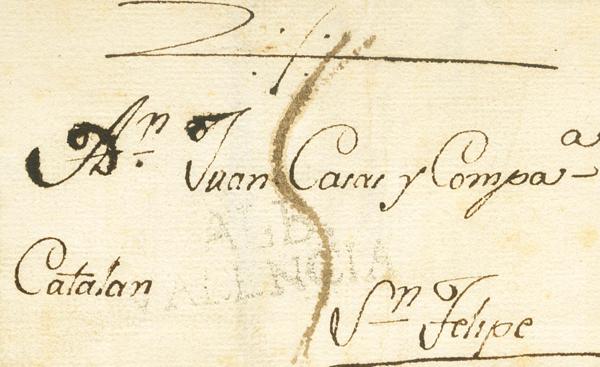 Dn. Juan Casas y Compaa
ALB.
VALENCIA
Catalan
Sn Felipe